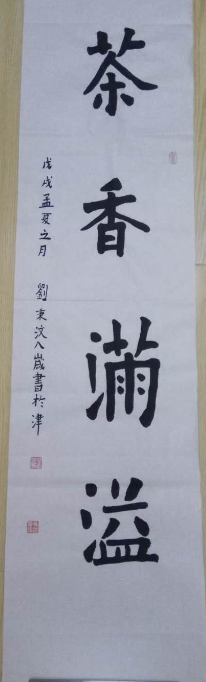 茶香滿溢
戊戌孟夏之月 劉東汶八歲書於津